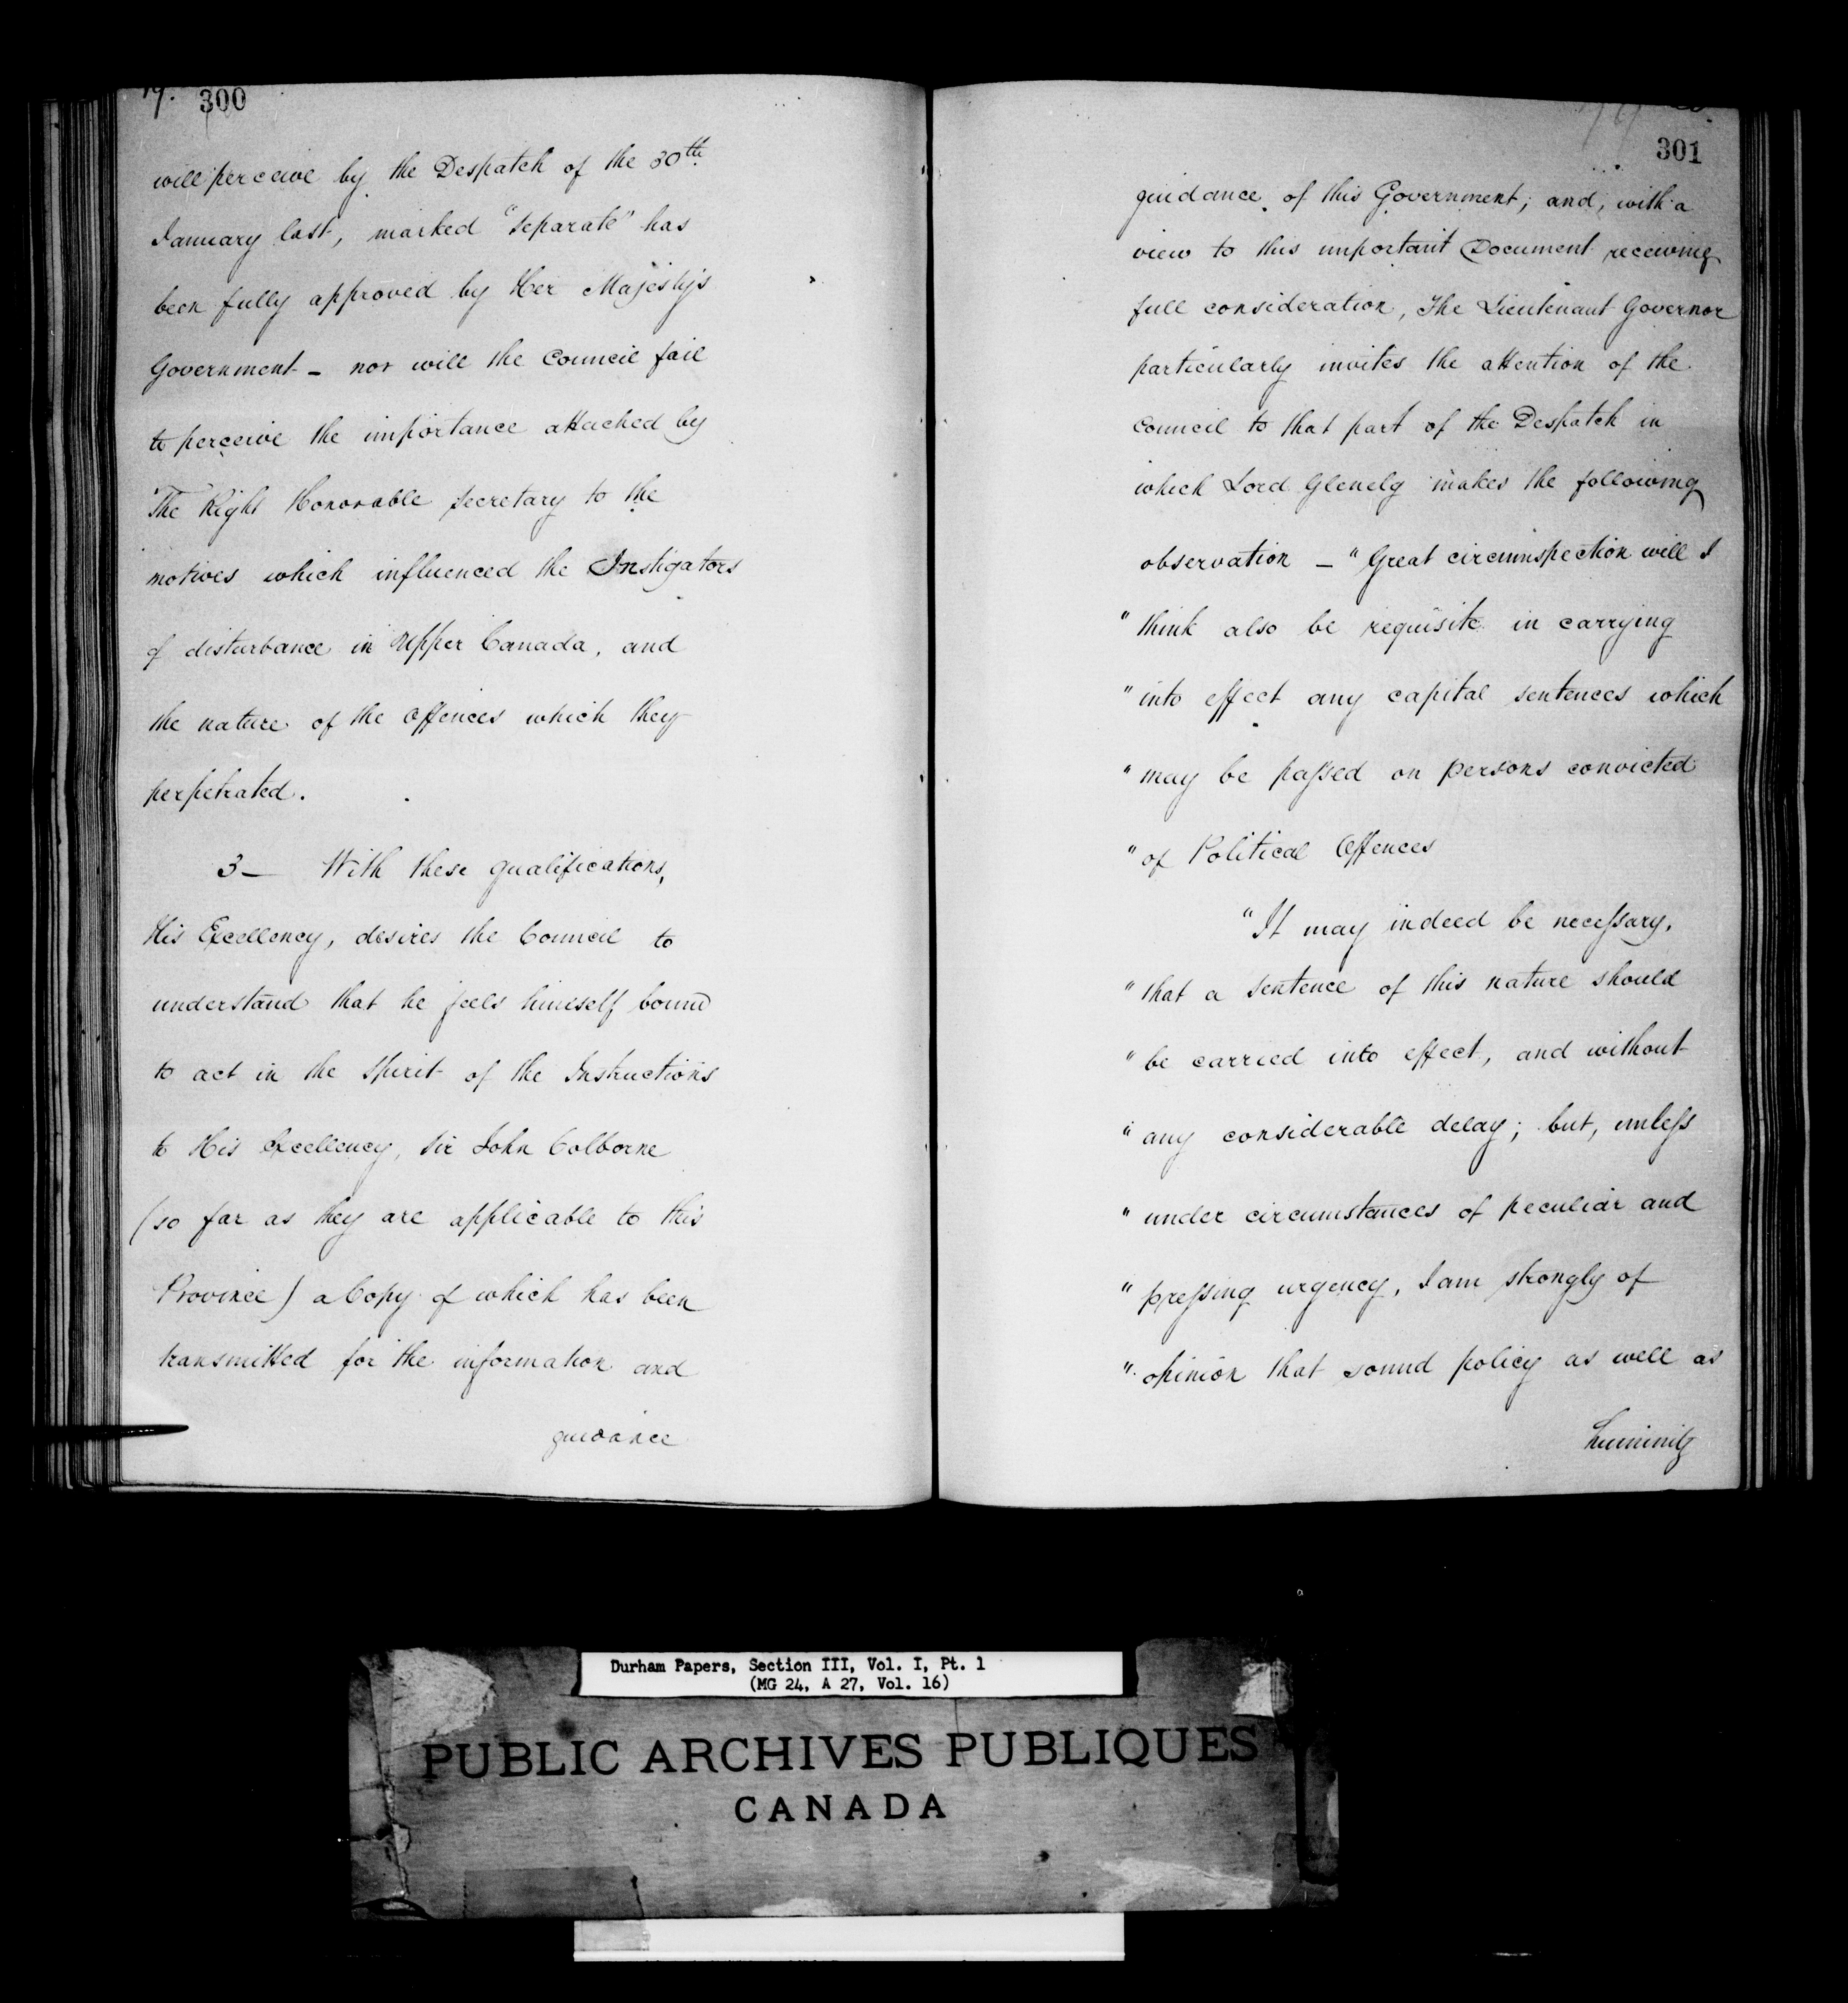 19. 300
will perceive by the Despatch of the 30th
January last, marked "Separate" has
been fully approved by Her Majesty's
Government - nor will the Council fail
to perceive the importance attached by
The Right Honorable Secretary to the
motives which influenced the Instigators
of disturbance in Upper Canada, and
the nature of the Offences which they
perpetrated.
3 - With these qualifications,
His Excellency, desires the Council to
understand that he feels himself bound
to act in the Spirit of the Instructions
to His Excellency, Sir John Colborne
(so far as they are applicable to this
Province) a Copy of which has been
transmitted for the information and
guidance
301
guidance of this Government; and, with a
view to this important Document receiving
full consideration, The Lieutenant Governor
particularly invites the attention of the
Council to that part of the Despatch in
which Lord Glenelg makes the following
observation - "Great circumspection will I
"think also be requisite in carrying
"into effect any capital sentences which
"may be passed on persons convicted
"of Political Offences
"It may indeed be necessary,
"that a sentence of this nature should
"be carried into effect, and without
"any considerable delay; but, unless
"under circumstances of peculiar and
"pressing urgency, I am strongly of
"opinion that sound policy as well as
Durham Papers, Section III, Vol. I, Pt. 1
(MG 24, A 27, Vol. 16)
PUBLIC ARCHIVES PUBLIQUES
CANADA